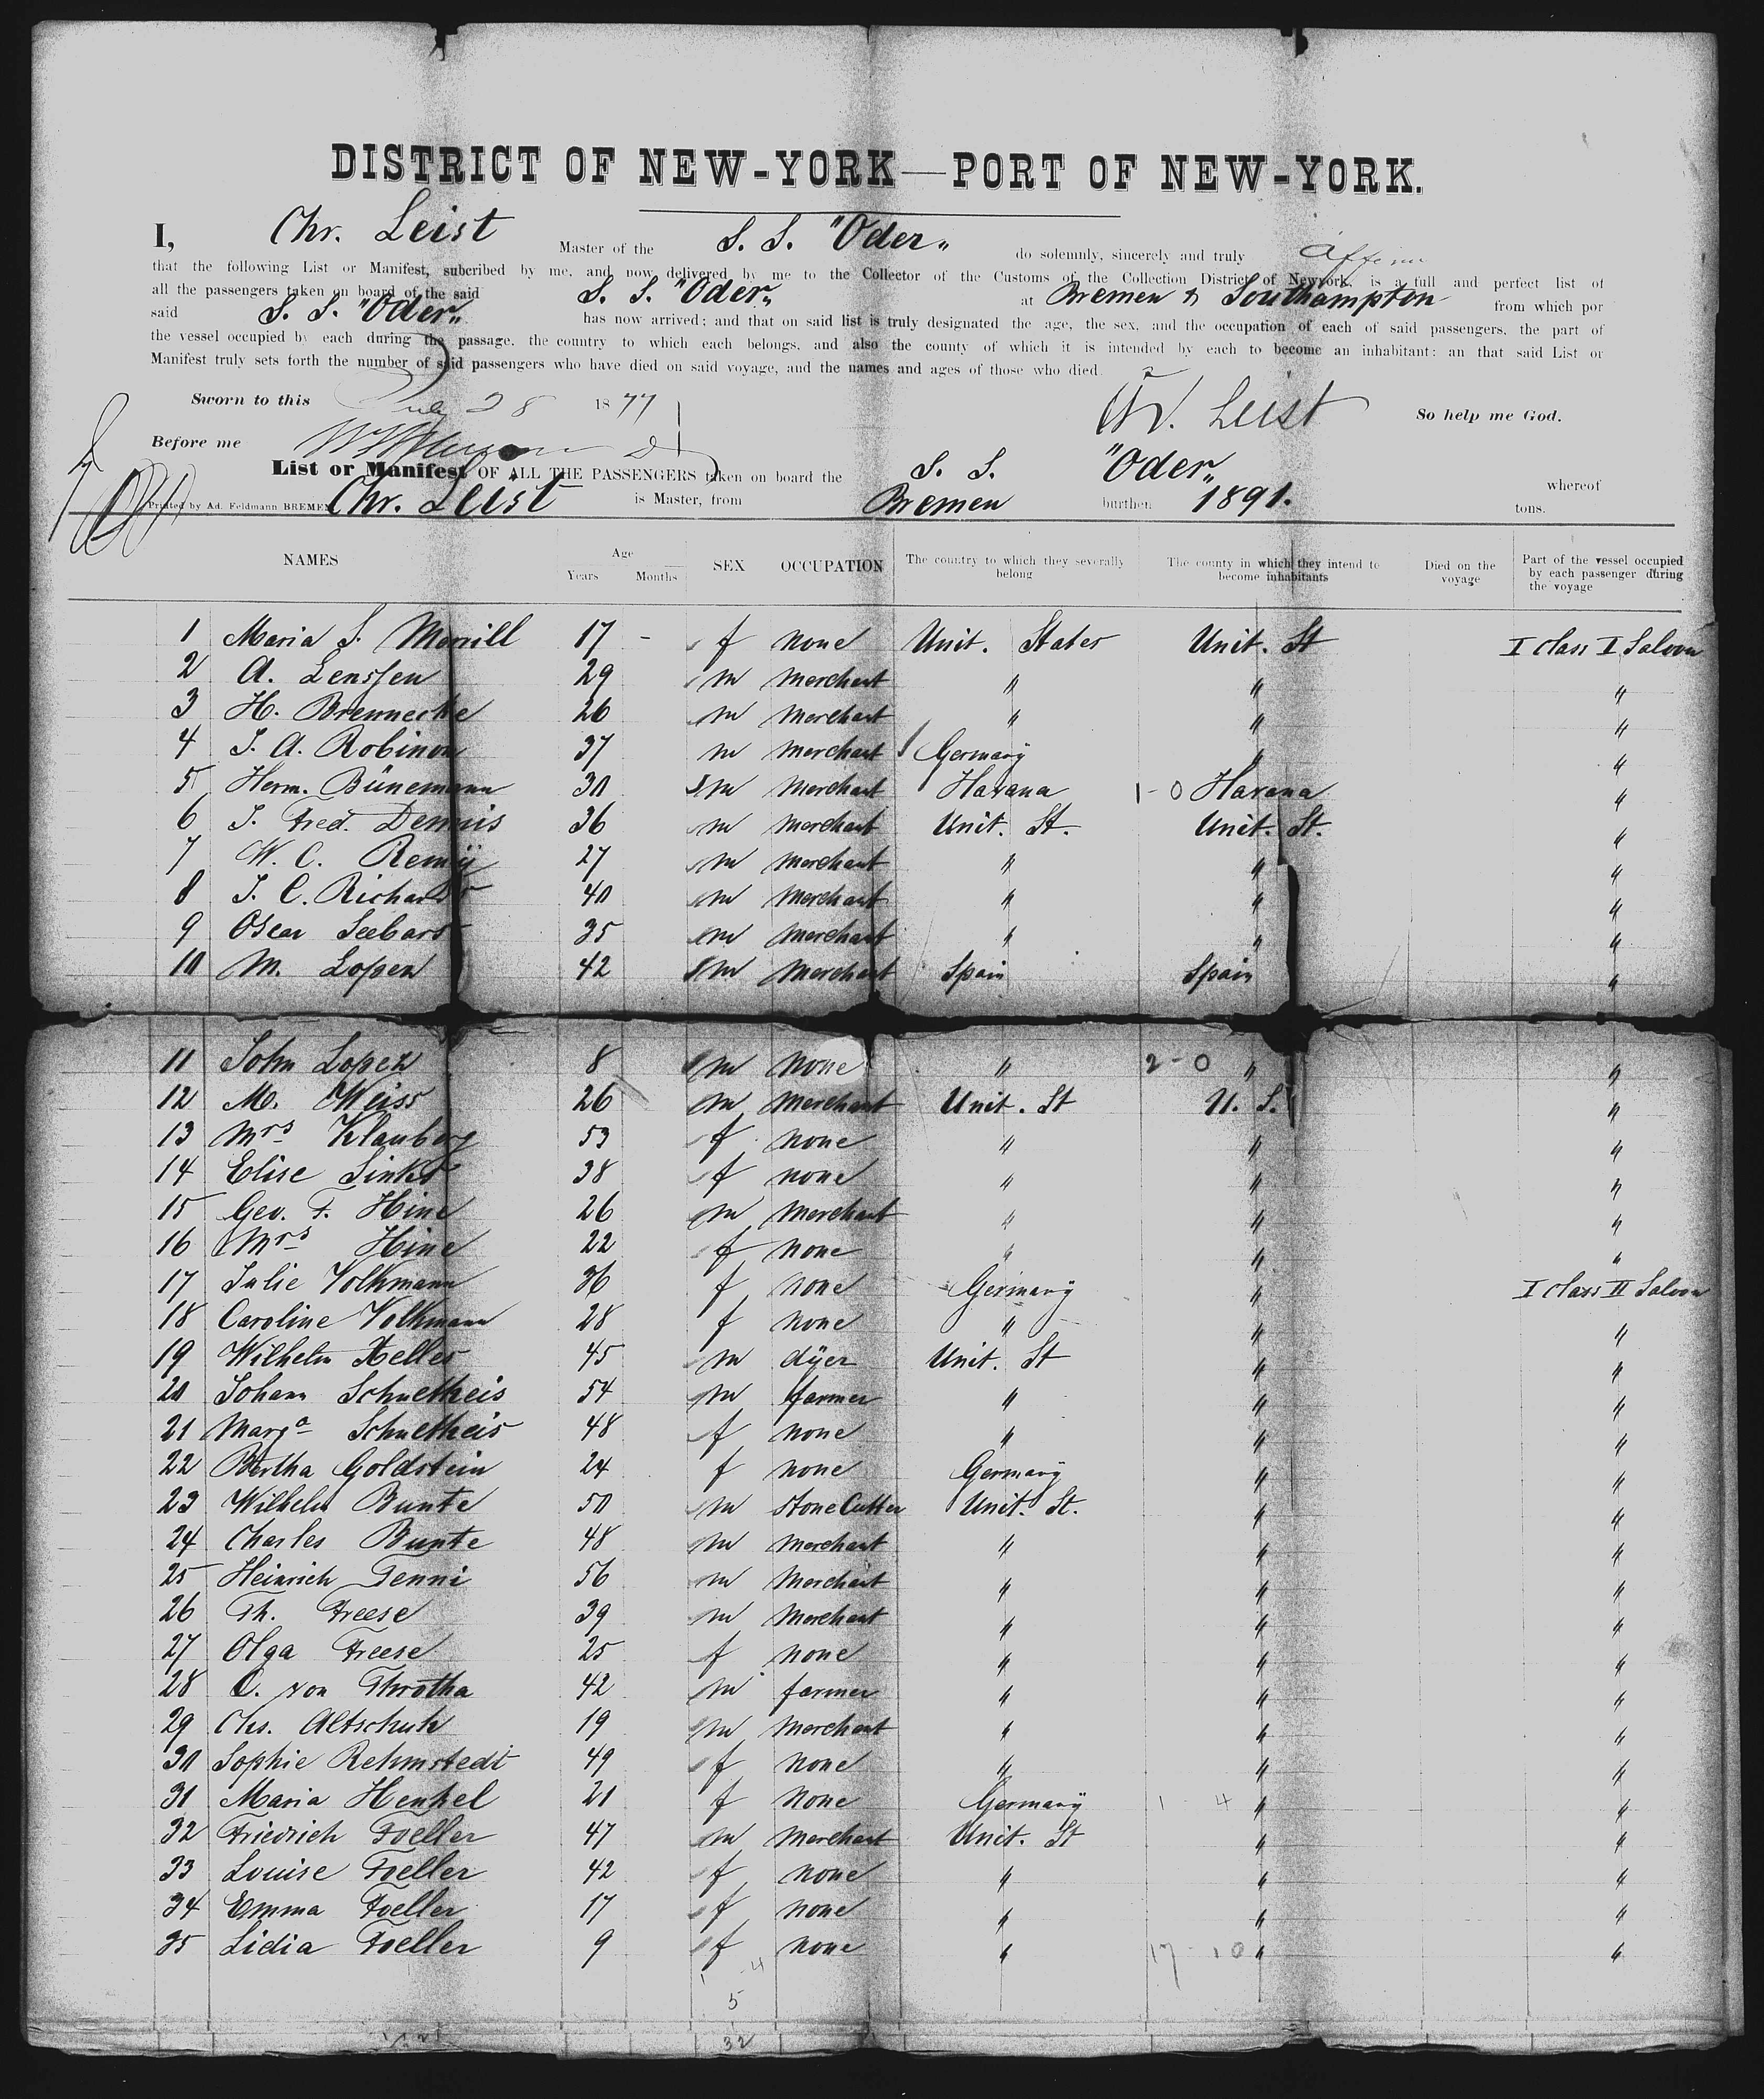 DISTRICT OF NEW-YORK—PORT OF NEW-YORK.
I, Chr. Leist Master of the S. S. "Oder" do solemnly, sincerely and truly affirm
that the following List or Manifest, subcribed by me, and now delivered by me to the Collector of the Customs of the Collection District of Newyork, is a full and perfect list of
all the passengers taken on board of the said S. S. "Oder" at Bremen & Southampton from which por
said S. S. "Oder" has now arrived; and that on said list is truly designated the age, the sex, and the occupation of each of said passengers, the part of
the vessel occupied by each during the passage, the country to which each belongs, and also the county of which it is intended by each to become an inhabitant: an that said List or
Manifest truly sets forth the number of said passengers who have died on said voyage, and the names and ages of those who died.
Sworn to this July 28 1877 Chr. Leist So help me God.
Before me
List or Manifest OF ALL THE PASSENGERS taken on board the S. S. "Oder" whereof
Printed by Ad. Feldmann BREMEN Chr. Leist is Master, from Bremen burthen 1891. tons.
NAMES Age Years Months SEX OCCUPATION The country to which they severally belong The county in which they intend to become inhabitants Died on the voyage Part of the vessel occupied by each passenger during the voyage
1 Maria S. Morrill 17 - f none Unit. States Unit. St I class I Saloon
2 A. Lenssen 29 m merchant " " "
3 H. Brennecke 26 m merchant " " "
4 J. A. Robinon 37 m merchant Germany " "
5 Herm. Bünemann 30 m merchant Havana 1-0 Havana "
6 J. Fred. Dennis 36 m merchant Unit. St. Unit. St. "
7 W. C. Remÿ 27 m merchant " " "
8 J. C. Richards 40 m merchant " " "
9 Oscar Seebars 35 m merchant " " "
10 M. Lopez 42 m merchant Spain Spain "
11 John Lopez 8 m none " 2-0 " "
12 M. Weiss 26 m merchant Unit. St U. S. "
13 Mrs Klauberg 53 f none " " "
14 Elise Links 38 f none " " "
15 Geo. F. Hine 26 m merchant " " "
16 Mrs Hine 22 f none " " "
17 Julie Volkmann 36 f none Germany " I class II Saloon
18 Caroline Volkmann 28 f none " " "
19 Wilhelm Keller 45 m dÿer Unit. St " "
20 Johann Schueltheis 54 m farmer " " "
21 Marga Schueltheis 48 f none " " "
22 Bertha Goldstein 24 f none Germany " "
23 Wilhelm Bunte 50 m Stone Cutter Unit. St. " "
24 Charles Bunte 48 m merchant " " "
25 Heinrich Tenni 56 m merchant " " "
26 Th. Freese 39 m merchant " " "
27 Olga Freese 25 f none " " "
28 C. von Throtha 42 m farmer " " "
29 Chs. Altschulz 19 m merchant " " "
30 Sophie Rehmstedt 49 f none " " "
31 Maria Henkel 21 f none Germanÿ 1 - 4 " "
32 Friedrich Foeller 47 m merchant Unit. St " "
33 Louise Foeller 42 f none " " "
34 Emma Foeller 17 f none " " "
35 Lidia Foeller 9 f none " 17 - 10 " "
1 4
5
32